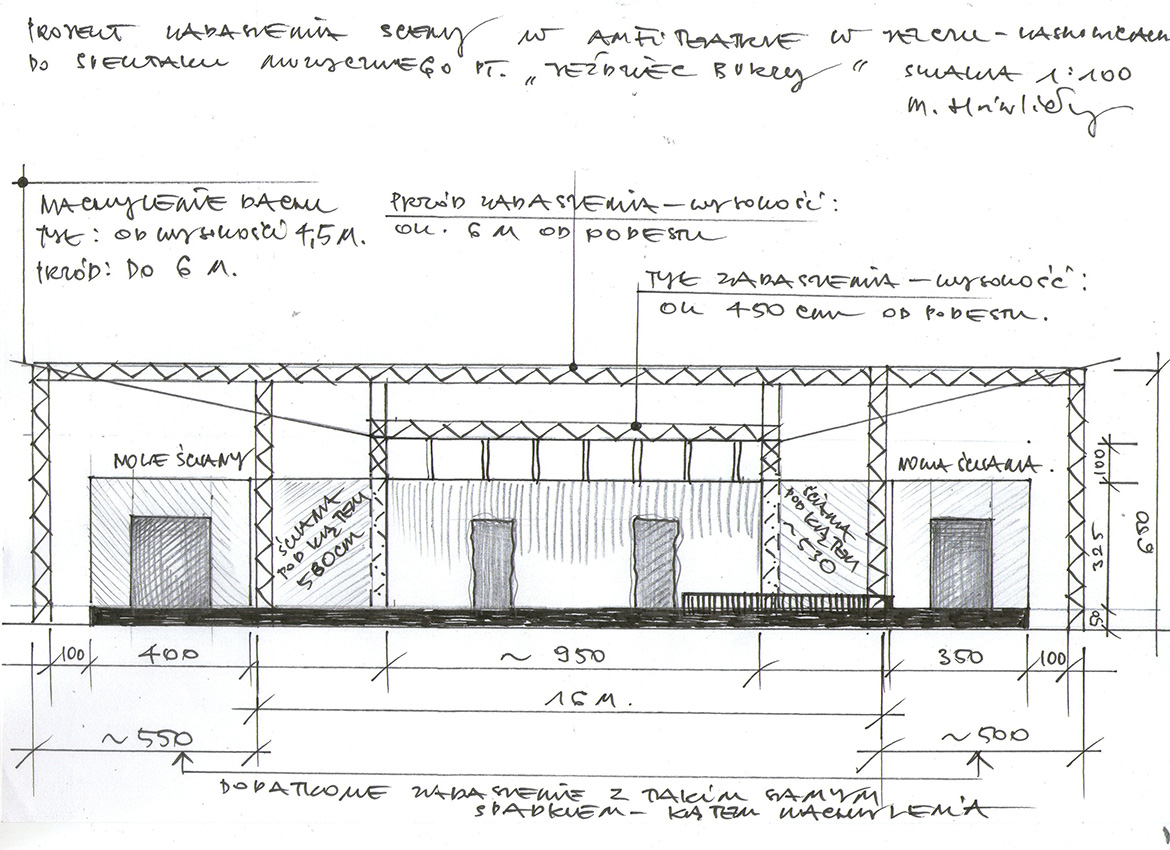 PROJEKT ZADASZENIA SCENY W AMFITEATRZE W JELCZU-LASKOWICACH
DO SPEKTAKLU MUZYCZNEGO PT. „JEŹDZIEC BURZY" SKALA 1:100
M.
NACHYLENIE DACHU
TYŁ: OD WYSOKOŚCI 4,5 M.
PRZÓD: DO 6 M.
PRZÓD ZADASZENIA – WYSOKOŚĆ:
OK. 6 M OD PODESTU
TYŁ ZADASZENIA – WYSOKOŚĆ:
OK 450 cm OD PODESTU.
NOWE ŚCIANY
NOWA ŚCIANA.
ŚCIANA
POD KĄTEM
580CM
ŚCIANA
POD KĄTEM
~530
100
325
50
690
100
400
~ 950
350
100
16 M.
~ 550
~ 500
DODATKOWE ZADASZENIE Z TAKIM SAMYM
SPADKIEM – KĄTEM NACHYLENIA